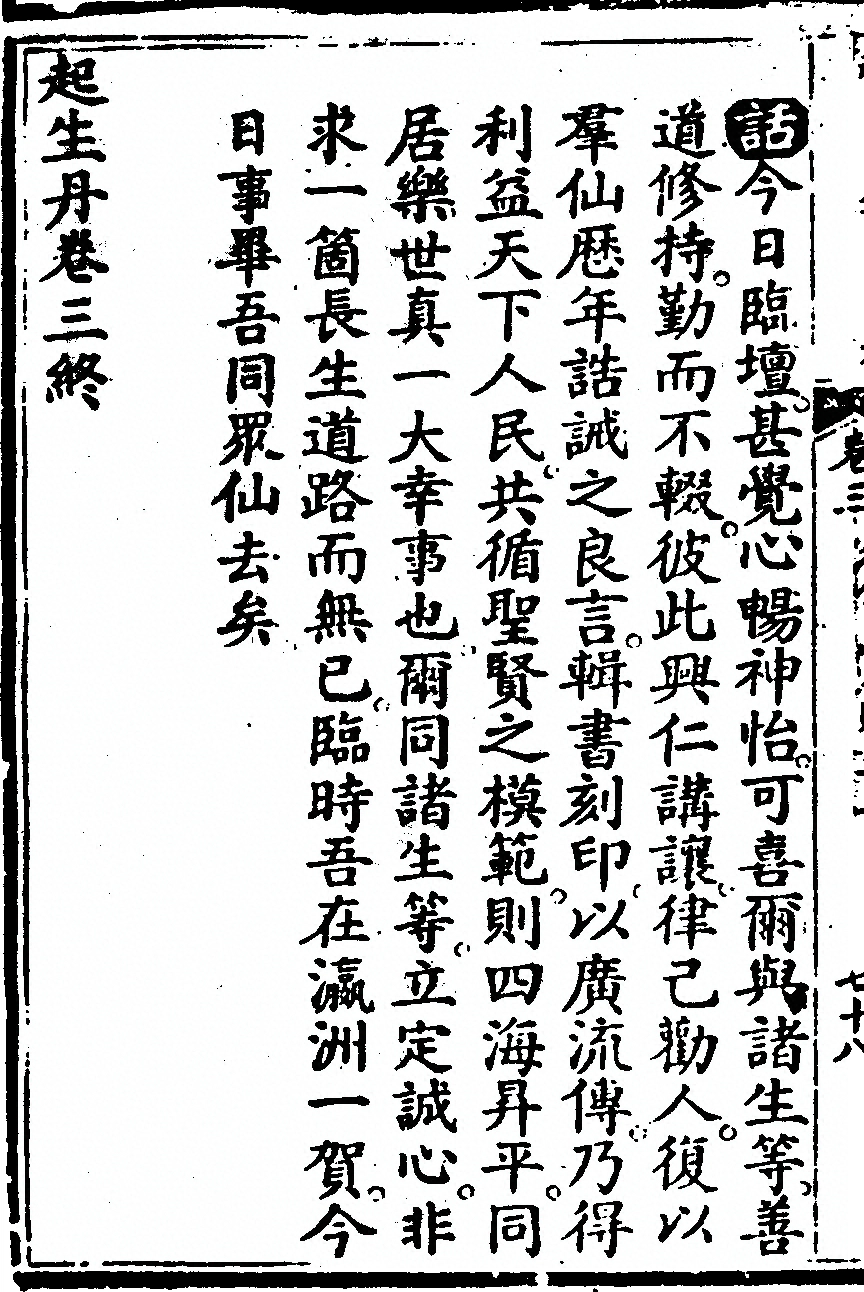 話今日臨壇甚覺心暢神怡可喜爾與諸生等善
道修持勤而不輟彼此興仁講讓律己勸人復以
羣仙歷年誥誡之良言輯書刻印以廣流傳乃得
利益天下人民共循聖賢之模範則四海昇平同
居樂世真一大幸事也爾同諸生等立定誠心非
求一箇長生道路而無已臨時吾在瀛洲一賀今
日事畢吾同眾仙去矣
起生丹卷三終
卷三
七十八